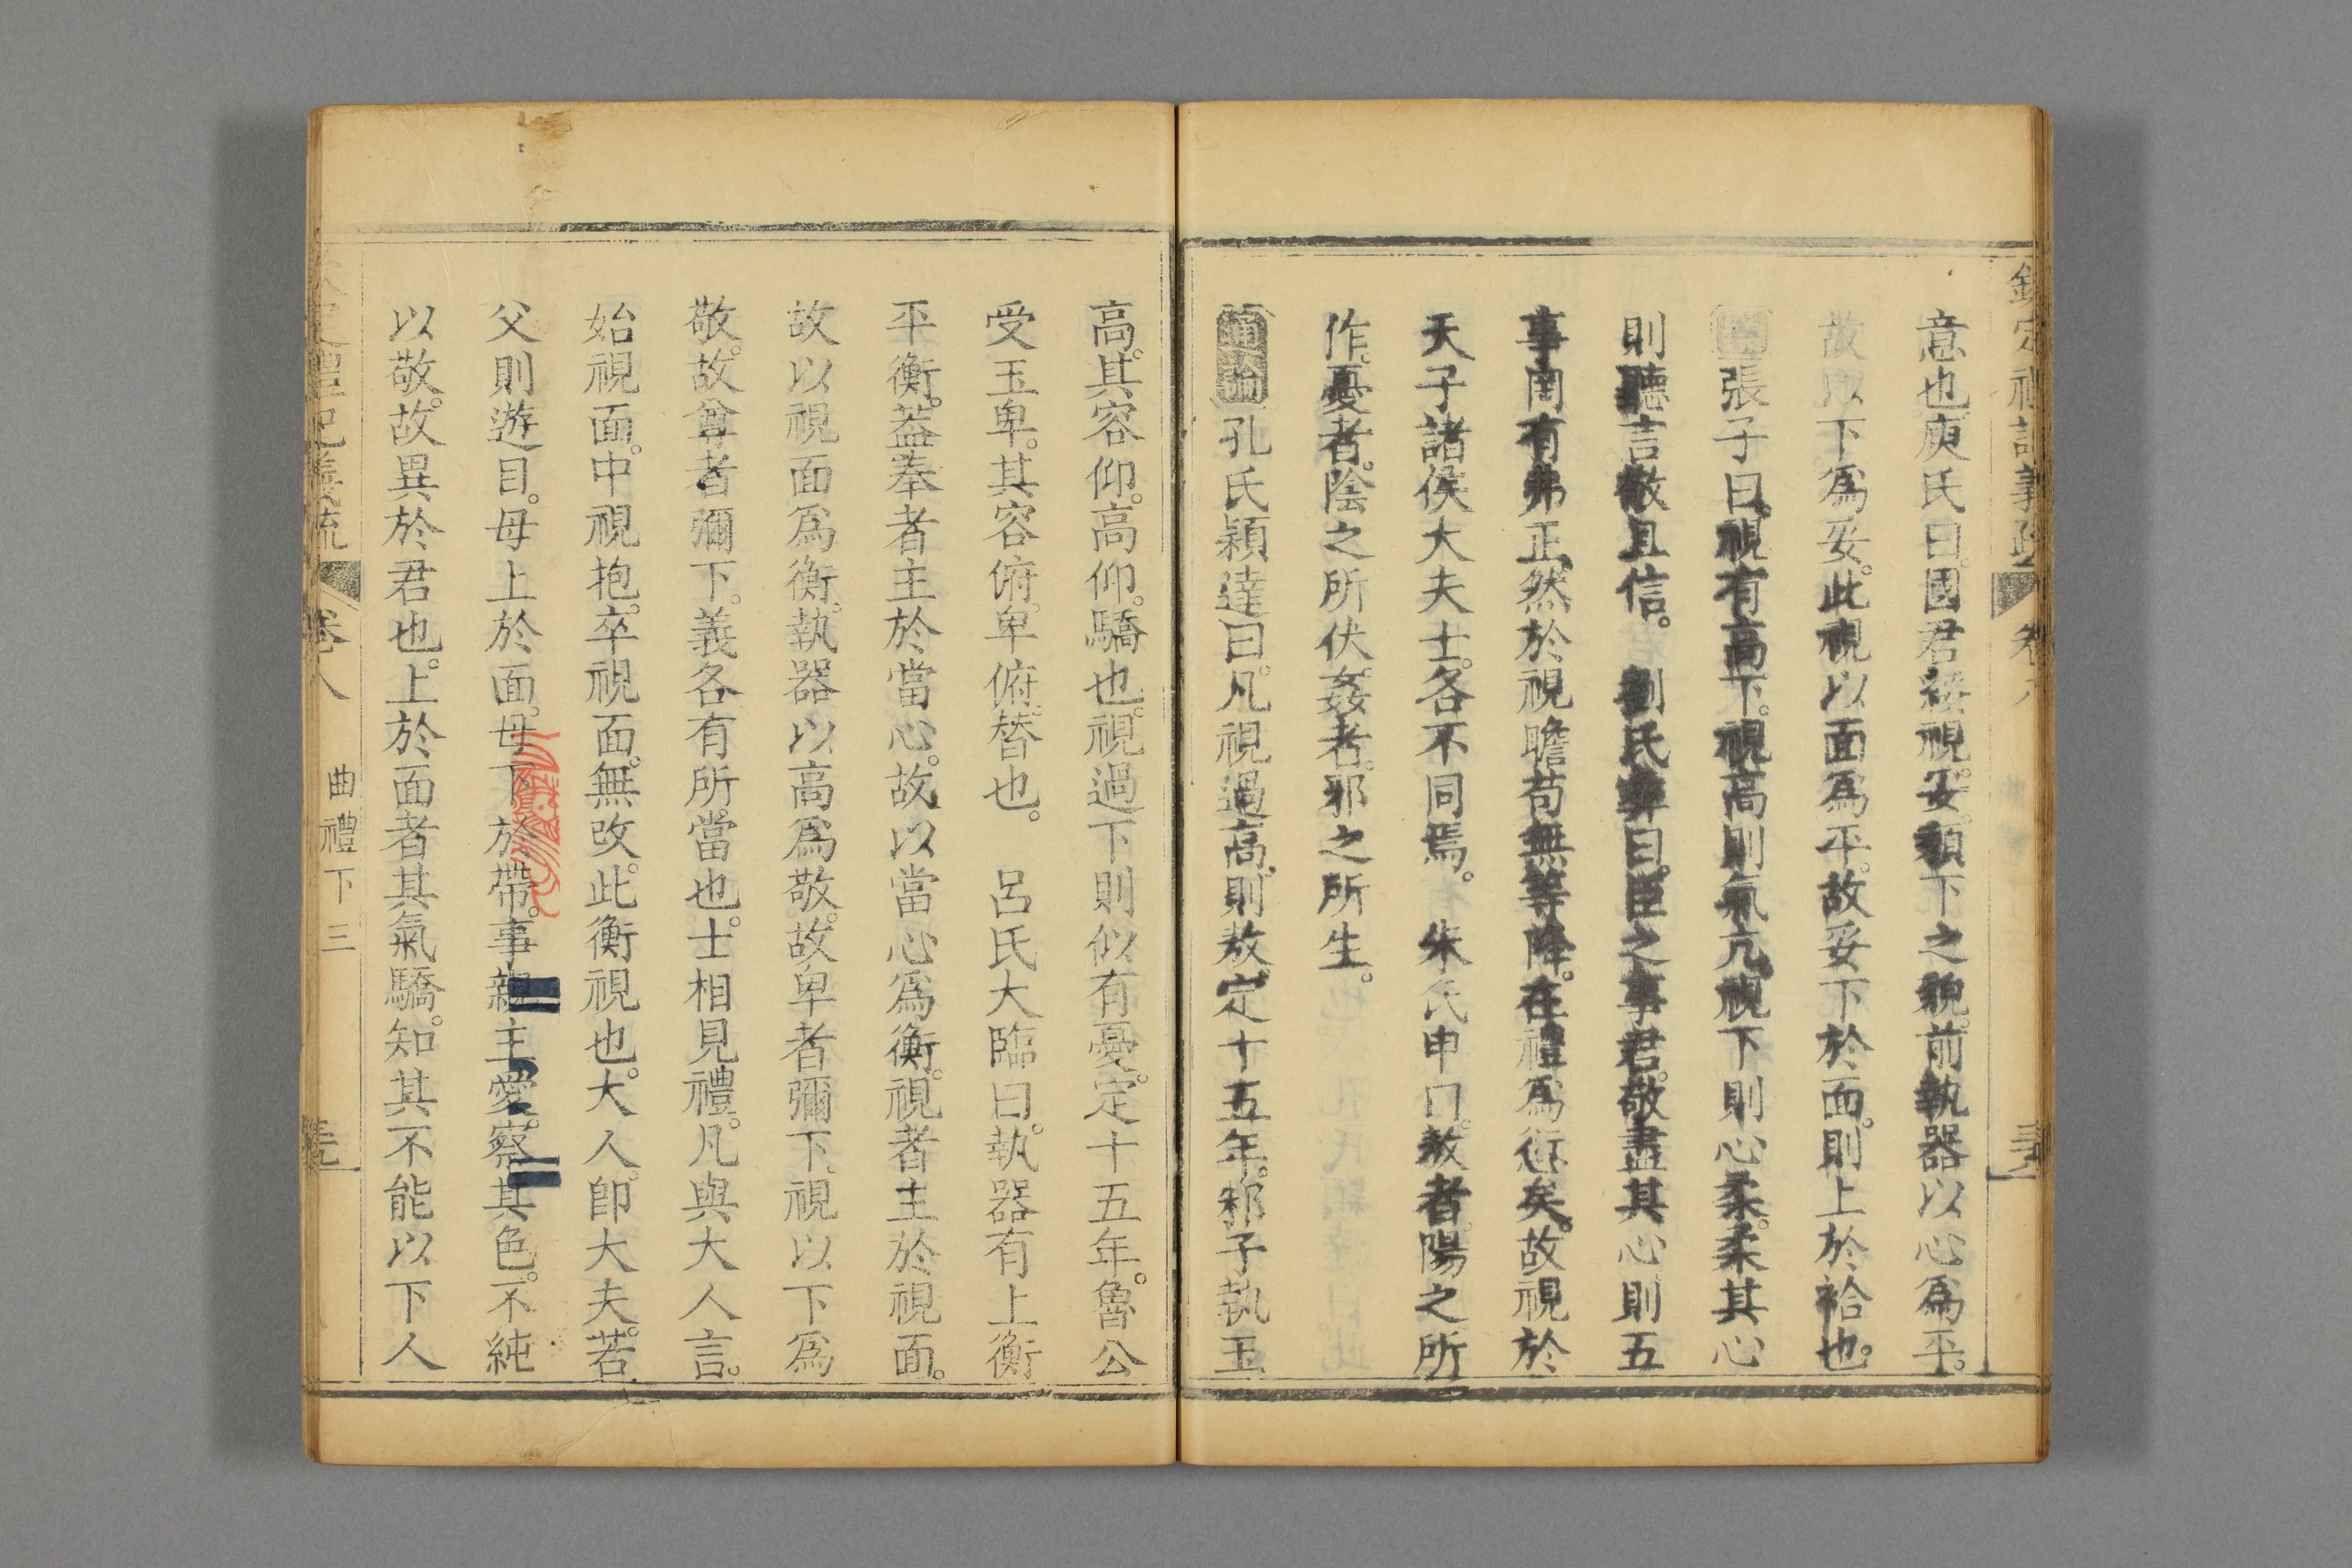 意也庾氏曰國君綏視妥頽下之貌前執器以心爲平。
故以下爲妥。此視以面爲平。故妥下於面。則上於袷也。
張子曰。視有高下。視高則氣亢。視下則心柔。柔其心
則聽言敬且信。 劉氏彝曰。臣之事君。敬盡其心則五
事罔有弗正。然於視瞻苟無等降。在禮爲愆矣。故視於
天子諸侯大夫士。各不同焉。 朱氏申曰。敖者。陽之所
作。憂者。陰之所伏。姦者。邪之所生。
通論 孔氏穎達曰。凡視過高。則敖。定十五年。邾子執玉
高。其容仰。高仰。驕也。視過下則似有憂。定十五年。魯公
受玉卑。其容俯。卑俯。替也。 呂氏大臨曰。執器有上衡
平衡。蓋奉者主於當心。故以當心爲衡。視者主於視面。
故以視面爲衡。執器以高爲敬。故卑者彌下。視以下爲
敬。故尊者彌下。義各有所當也。士相見禮。凡與大人言。
始視面。中視抱。卒視面。無改。此衡視也。大人。卽大夫。若
父則遊目。毋上於面。毋下於帶。事親主愛。察其色。不純
以敬。故異於君也。上於面者其氣驕。知其不能以下人
卷八 曲禮下三